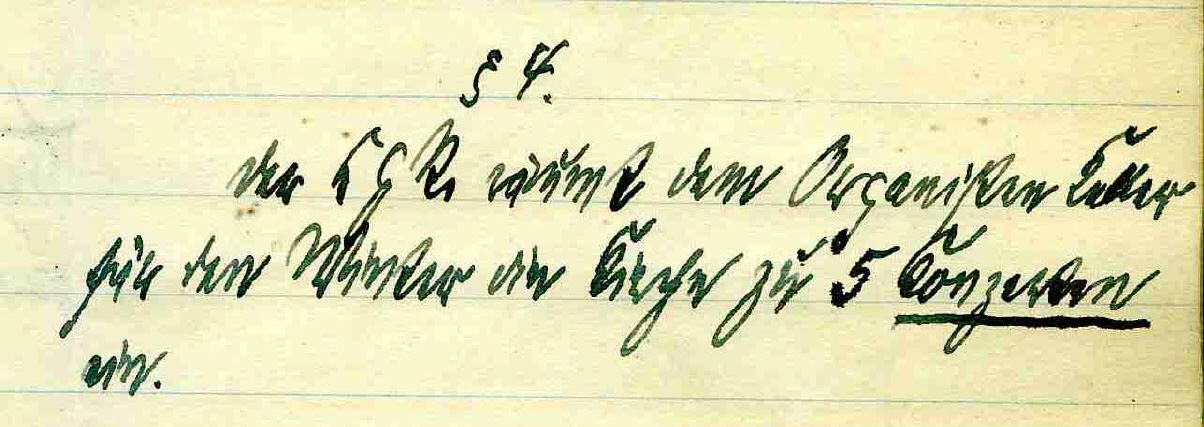 § 4.
Der KGR. räumt dem Organisten Keller
für den Winter die Kirche zu 5 Konzerten
ein.